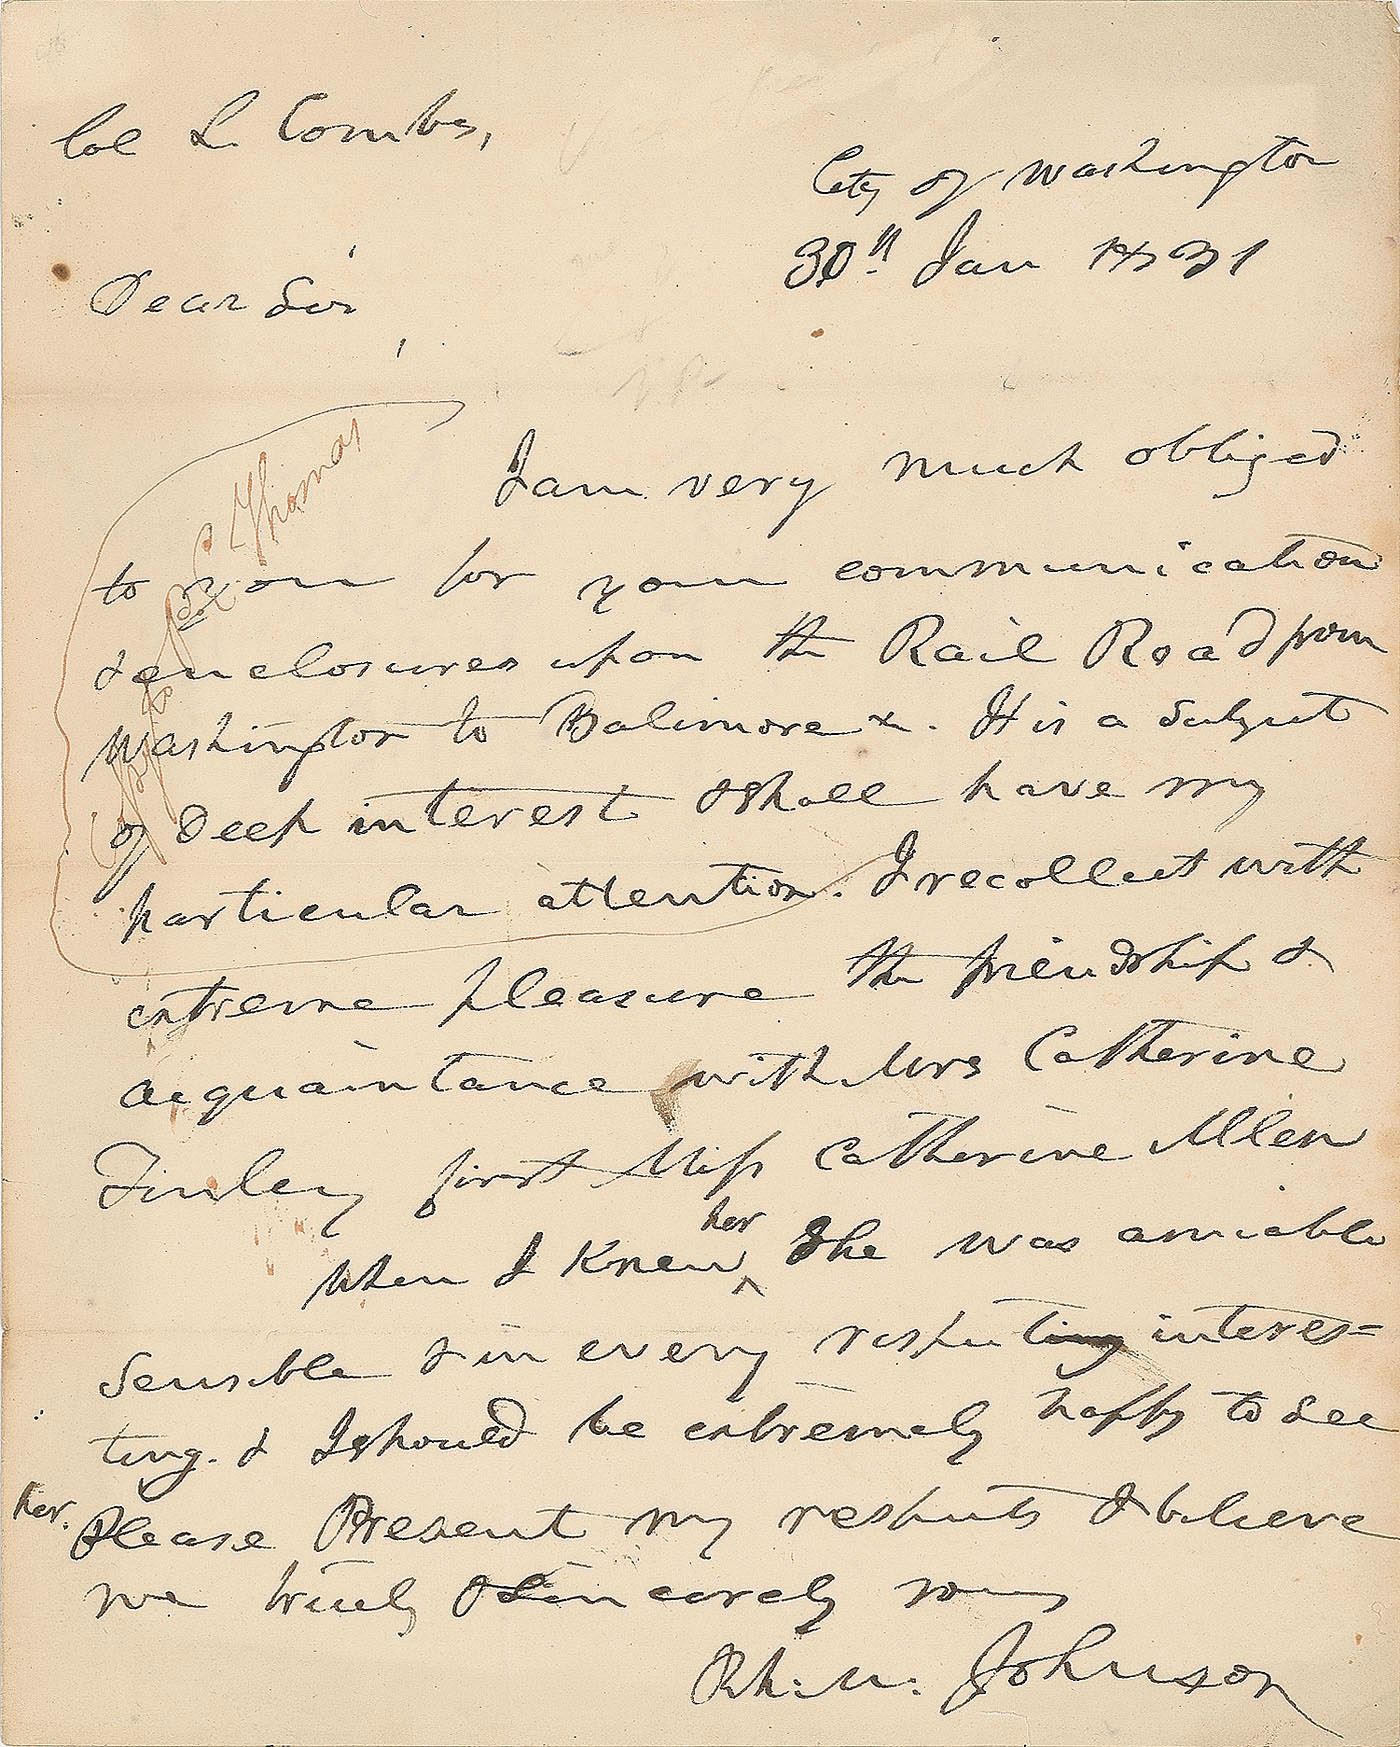 Col L. Combs,
City of Washington
30th Jan 1831
Dear Sir,
I am very much obliged
to you for your communication
& enclosures upon the Rail Road from
Washington to Balimore &. It is a Subject
of deep interest & shall have my
particular attention. I recollect with
extreme pleasure the friendship &
acquaintance with Mrs Catherine
Finley first Miss Catherine Allen
When I Knew her She was amiable
Sensible & in every respect interes=
ting. & I should be extremely happy to see
her. Please Present my respects & believe
me truely & Sincerely yours
Rh: M: Johnson
Thomas